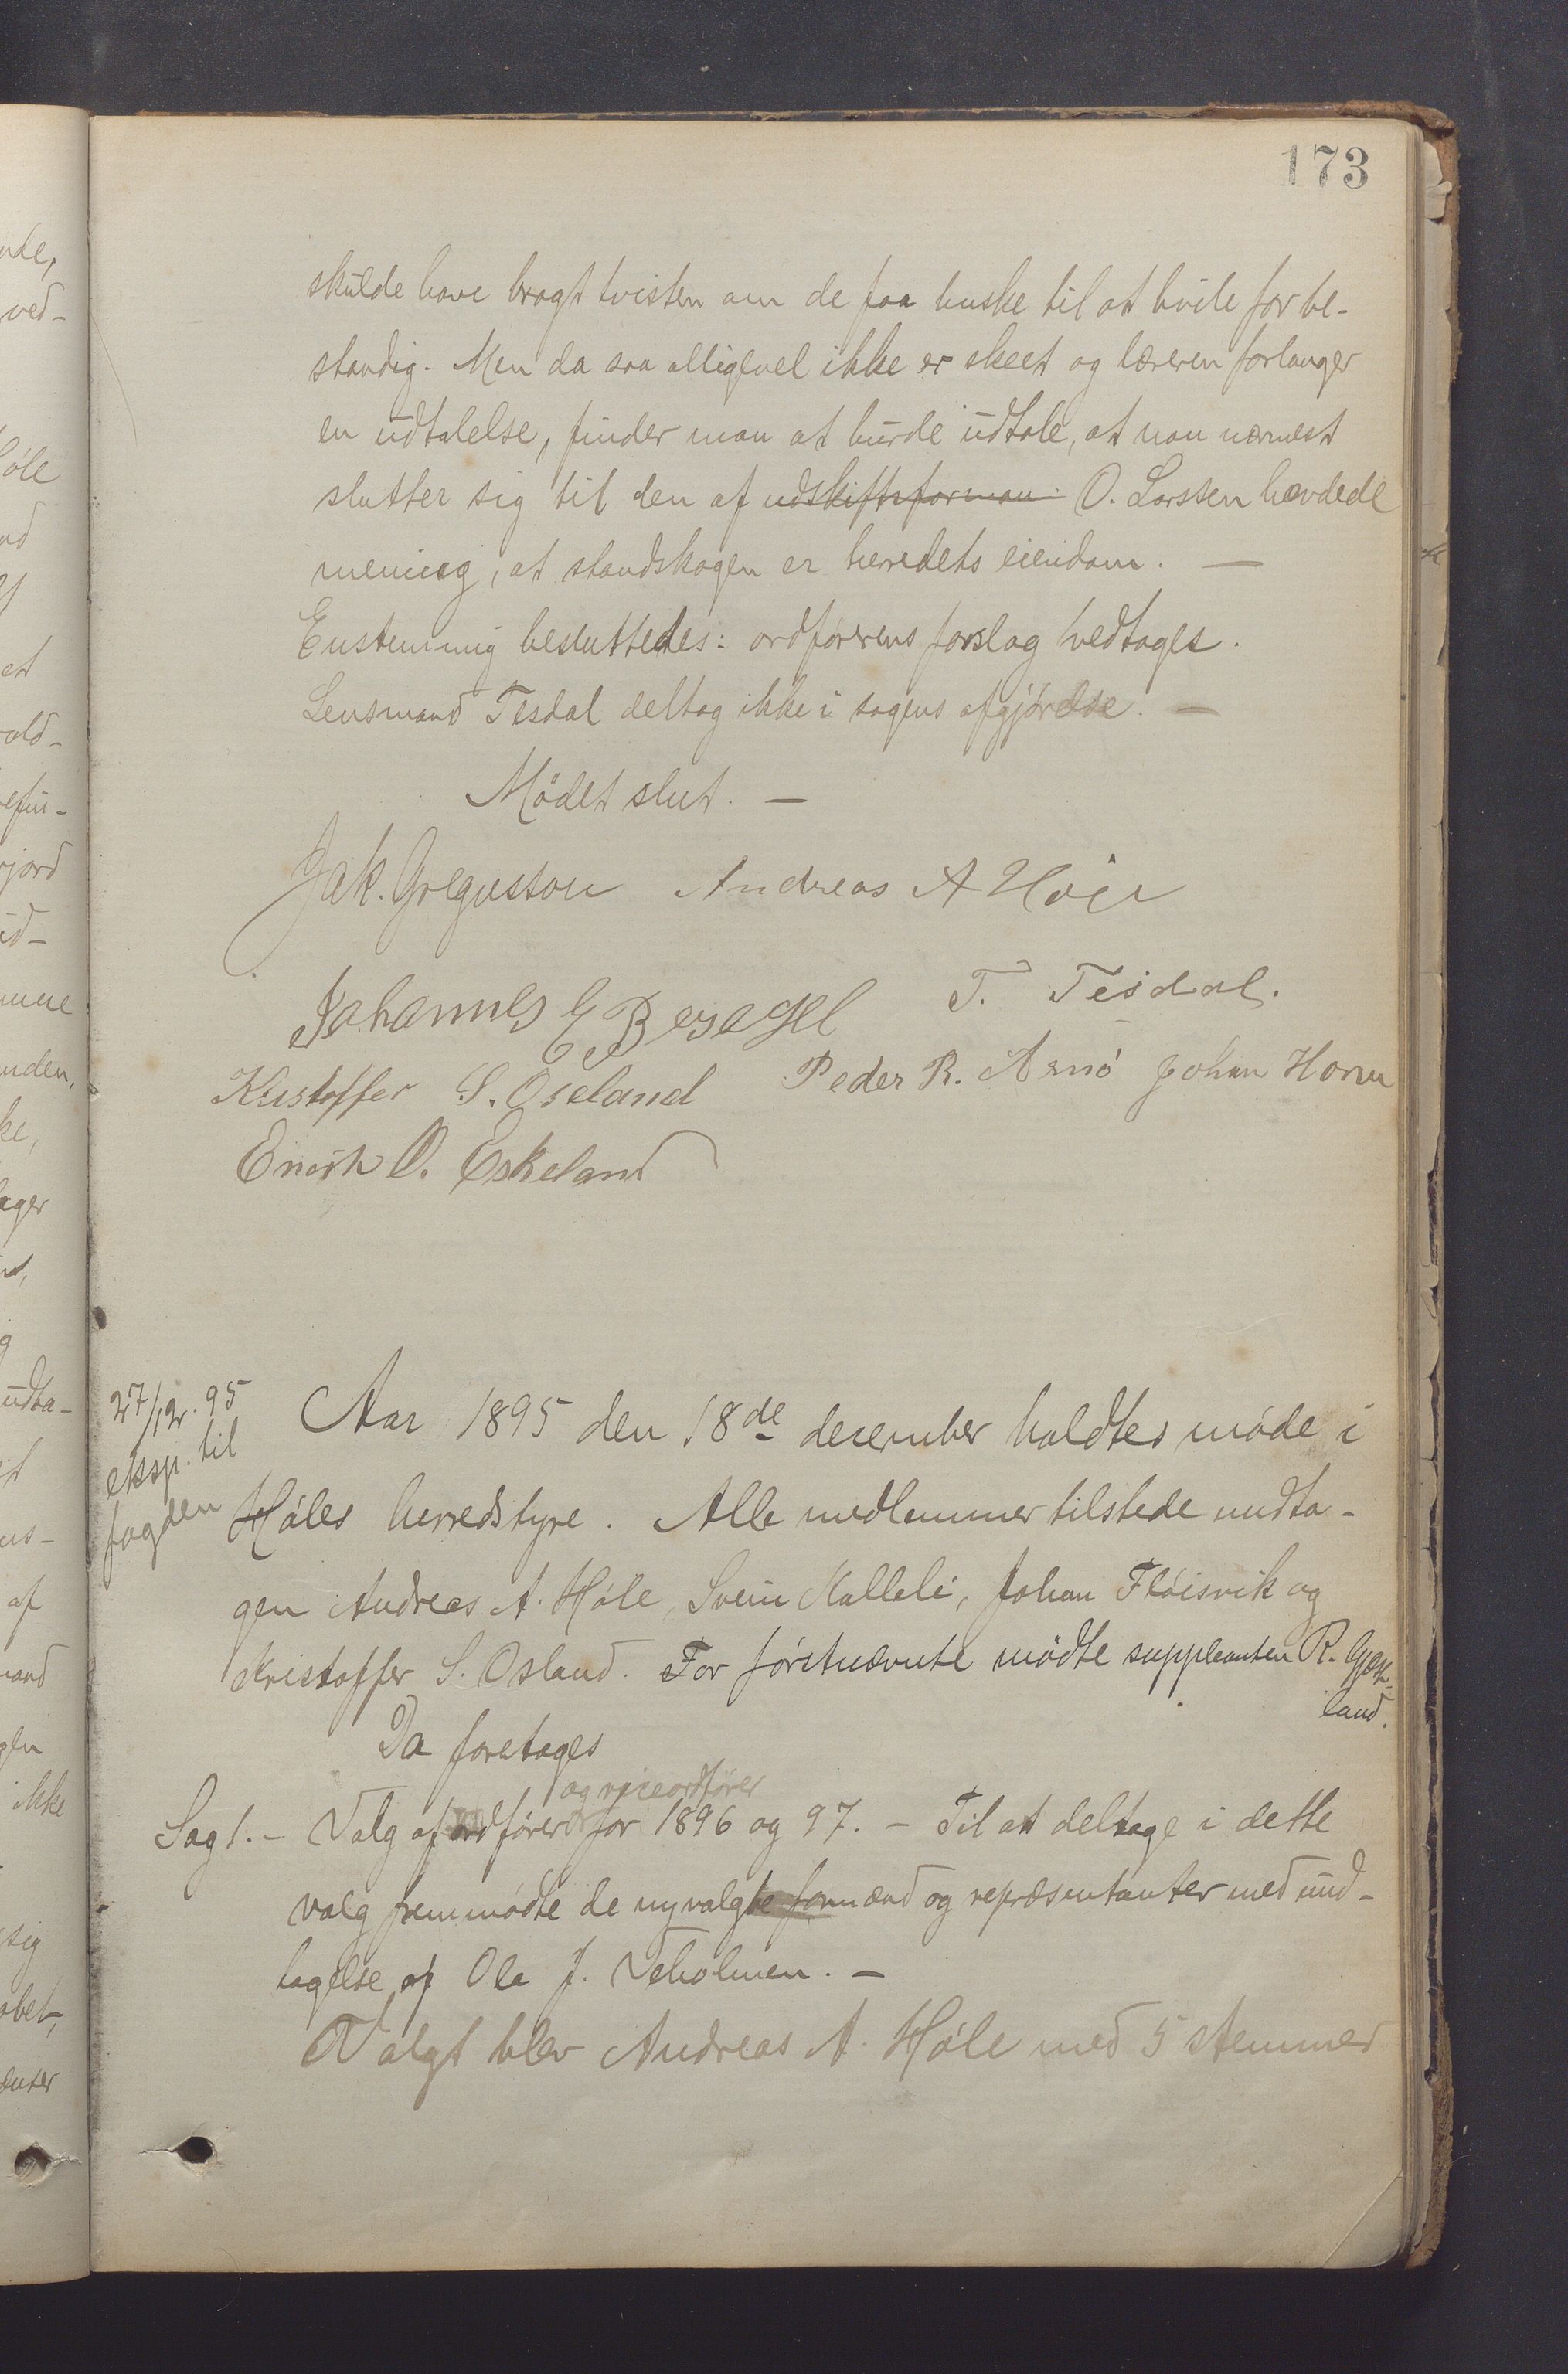 173
skulde have bragt tvisten om de faa buske til at hvile for be-
standig. Men da saa alligevel ikke er skeet og læreren forlanger
en udtalelse, finder man at burde udtale, at man nærmest
slutter sig til den af udskiftsforman O. Larssen hævdede
mening, at standskogen er herredets eiendom. —
Enstemmig besluttedes: ordførerens forslag vedtages.
Lensmand Tesdal deltog ikke i sagens afgjørelse. —
Mødet slut. —
Jak. Gregusson Andreas A Høle
Johannes E Bersagel T. Tesdal.
Kristoffer S. Oseland Peder R. Asmo Johan Horve
Enok O. Eskeland
27/12. 95
eksp. til
fogden
Aar 1895 den 18de december holdtes møde i
Høles herredstyre. Alle medlemmer tilstede undta-
gen Andreas A. Høle, Svein Kalleli, Johan Fløisvik og
Kristoffer S. Osland. For førstnævnte mødte suppleanten R. Gjese-
land.
Da foretages
og viceordfører
Sag 1. — Valg af ordfører for 1896 og 97. — Til at deltage i dette
valg fremmødte de nyvalgte formænd og repræsentanter med und-
tagelse af Ola J. Veholmen. —
Valgt blev Andreas A. Høle med 5 stemmer